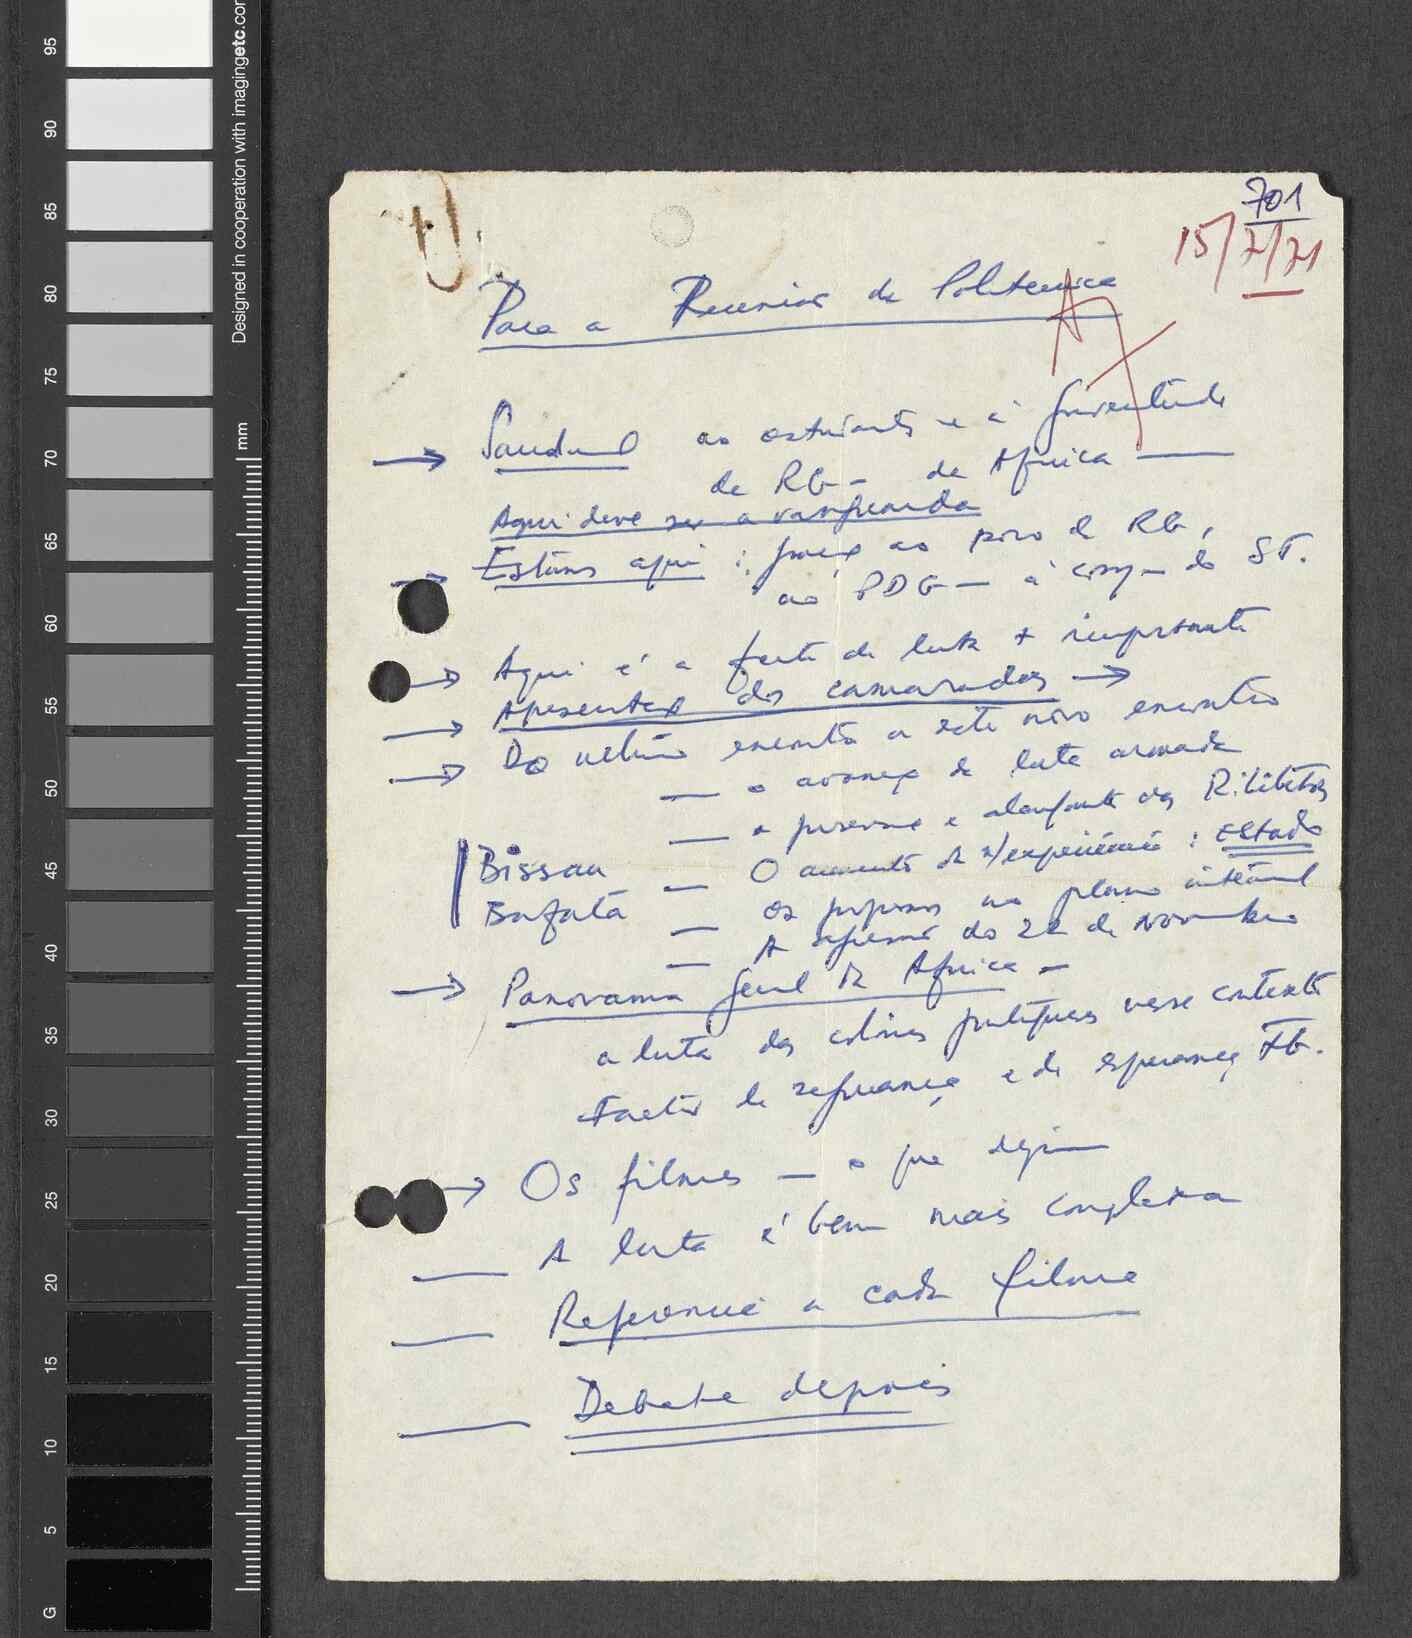 701
15/7/71
Para a Reunião de Politécnica
→ Saudaç ao estudants e à juventude
de RG – de Africa —
Aqui deve ser a vanguarda
→ Estamos aqui : graç ao povo d RG,
ao PDG – à do ST.
→ Aqui é a de luta + importante
→ Apresentaç dos camaradas →
→ Do último encontro a este novo encontro
— o avanço da luta armada
— o e das R. libtds
Bissau — O aumento da n/experiência : Estado
Bafatá — Os progressos no plano
— A agressão do 22 de Novembro
→ Panorama geral da Africa –
a luta das colónias portuguesas nesse contexto
Factor de segurança e de esperança
→ Os filmes — o que
— A luta é bem mais complexa
— Referencia a cada filme
— Debate depois
95
90
85
80
75
70
65
60
55
50
45
40
35
30
25
20
15
10
5
G
mm
Designed in cooperation with imagingetc.com